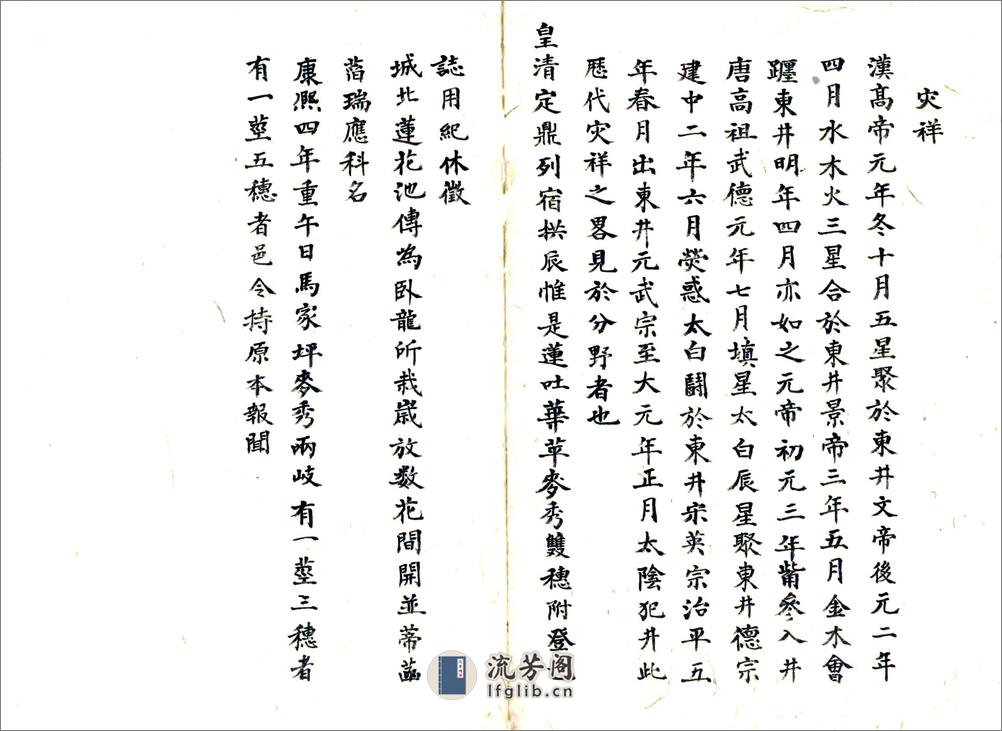 灾祥
漢髙帝元年冬十月五星聚於東井文帝後元二年
四月水木火三星合於東井景帝三年五月金木會
躔東井明年四月亦如之元帝初元三年觜參入井
唐高祖武德元年七月填星太白辰星聚東井德宗
建中二年六月熒惑太白鬪於東井宋英宗治平五
年春月出東井元武宗至大元年正月太陰犯井此
厯代灾祥之畧見於分野者也
皇清定鼎列宿拱辰惟是蓮吐華苹麥秀雙穗附登
誌用紀休徵
城北蓮花池傳為臥龍所栽嵗放数花間開並蒂菡
萏瑞應科名
康熈四年重午日馬家坪麥秀兩岐有一莖三穗者
有一莖五穗者邑令持原本報聞
流芳阁
lfglib.cn